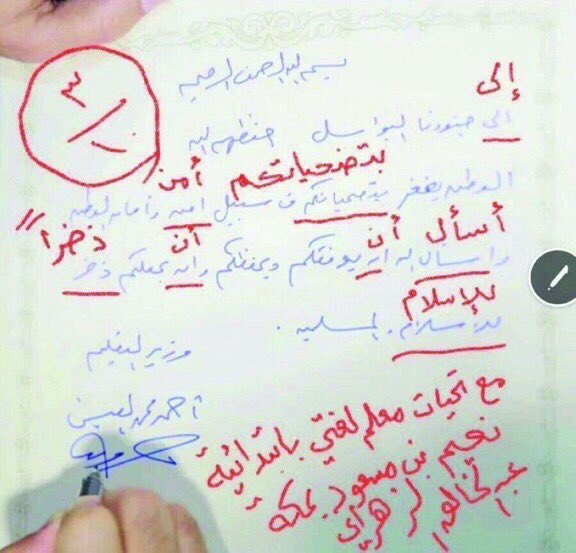 بسم الله الرحمن الرحيم
٣/١٠
إلى
الى جنودنا البواسل حفظهم الله
بتضحياتكم أمن
الوطن يفخر بتضحياتكم في سبيل امن وامان الوطن
أسأل أن أن ذخراً
واسال الله ان يوفقكم ويحفظكم وان يجعلكم ذخر
للإسلام
للاسلام والمسلمين.
وزير التعليم
أحمد محمد العيسى
مع تحيات معلم لغتي بابتدائية
نعيم بن مسعود بمكة
عبدالخالق الزهراني